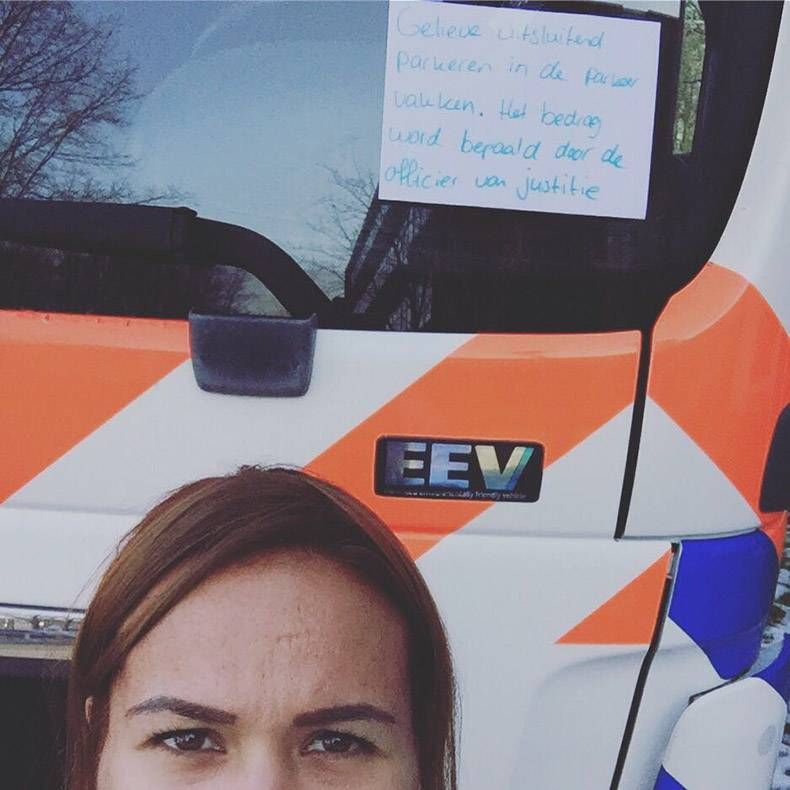 Gelieve uitsluitend
parkeren in de parkeer
vakken. Het bedrag
word bepaald door de
officier van justitie
EEV
environmentally friendly vehicle